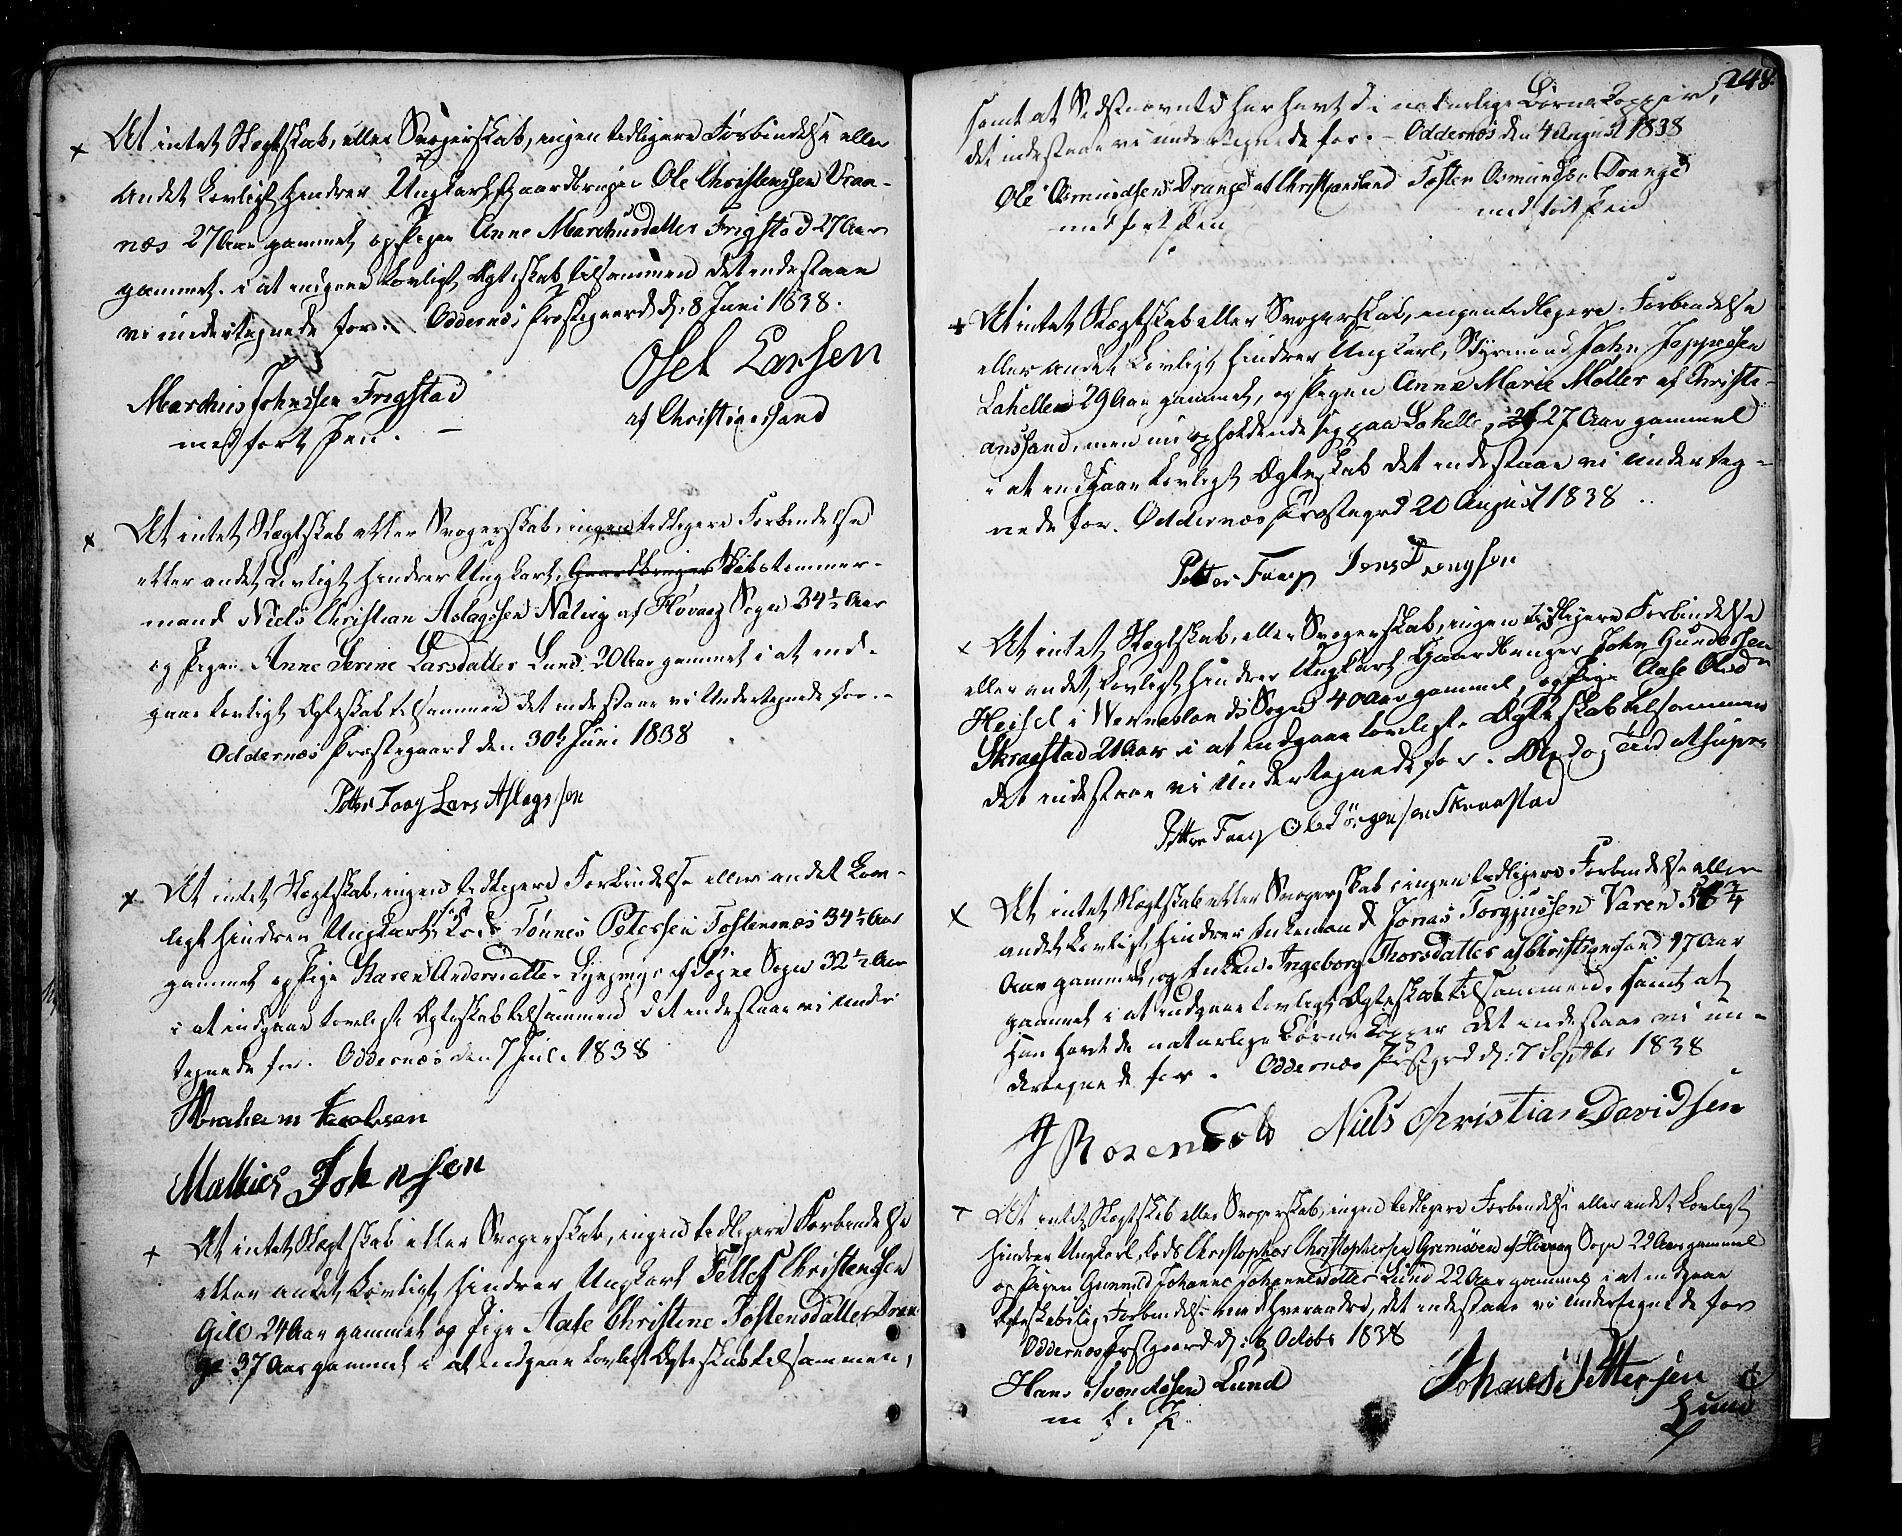 At intet Slægtskab, eller Svogerskab, ingen tidligere Forbindelse eller
andet Lovligt hindrer Ungkarl Gaardbruger Ole Christenssen Vraa-
næs 27 Aar gammel, og Pigen Anne Marchusdatter Frigstad 27 Aar
gammel i at indgaae lovligt Ægteskab tilsammen det indestaae
vi undertegnede for. Oddernæs Præstegaard d: 8 Juni 1838.
Marchus Johnssen Frigstad
med ført Pen.
Osel Larsen
af Christiansand
At intet Slægtskab eller Svogerskab, ingen tidligere Forbindelse
eller andet Lovligt hindrer Ungkarl, Gaardbruger Skibstømmer-
mand Niels Christian Aslagssen Natvig af Høvaag Sogn 34½ Aar
og Pigen Anne Serine Larsdatter Lund 20 Aar gammel i at ind-
gaae lovligt Ægteskab tilsammen det indestaae vi Undertegnede for.
Oddernæs Præstegaard den 30te Juni 1838
Petter Faag Lars Aslagssøn
At intet Slægtskab, ingen tidligere Forbindelse eller andet Lov-
ligt hindrer Ungkarl Tønnes Petersen Tostensnæs 34½ Aar
gammel og Pige Karen Andersdatter af Søgne Sogn 32½ Aar
i at indgaae lovligt Ægteskab tilsammen det indestaae vi under-
tegnede for. Oddernæs den 7 Juli 1838
Abraham Jacobsen
Mathies Johnsen
At intet Slægtskab eller Svogerskab, ingen tidligere Forbindelse
eller andet Lovligt hindrer Ungkarl Tellef Christensen
Gill 24 Aar gammel og Pige Aase Christine Tostensdatter Dran-
ge 37 Aar gammel i at indgaae lovligt Ægteskab tilsammen,
248.
samt at Sidstnævnte har havt de naturlige Børnekopper,
det indestaae vi undertegnede for. Oddernæs den 4 August 1838
Ole Osmundsen Drange af Christiansand Tosten Osmundsen Drange
med ført Pen med ført Pen
At intet Slægtskab eller Svogerskab, ingen tidligere Forbindelse
eller andet Lovligt hindrer Ungkarl, Styrmand John Jeppesen
Lahellen 29 Aar gammel, og Pigen Anne Marie Møller af Christi-
anssand, men nu opholdende sig paa Lahelle, 27 Aar gammel
i at indgaae lovligt Ægteskab det indestaae vi underteg-
nede for. Oddernæs Præstegrd 20 August 1838
Petter Faag Jens
At intet Slægtskab, eller Svogerskab, ingen tidligere Forbindelse
eller andet, Lovligt hindrer Ungkarl Gaardbruger John Gundersen
Heisel i Wennesland Sogn 40 Aar gammel, og Pige Aase Olsd
Skraastad 21 Aar i at indgaae lovligt Ægteskab tilsammen
det indestaae vi Undertegnede for. Dag og Tid ut supra
Petter Faag Ole Jørgensen Skraastad
At intet Slægtskab eller Svogerskab, ingen tidligere Forbindelse eller
andet Lovligt hindrer Enkemand Jonas Torgjussen Varen
Aar gammel, og Enken Ingeborg Thorsdatter af Christiansand 47 Aar
gammel i at indgaae lovligt Ægteskab tilsammen, samt at
han havt de naturlige Børnekopper det indestaae vi un-
dertegnede for. Oddernæs Præstgrd d: 7 Septbr 1838
Niels Christian Davidsen
At intet Slægtskab eller Svogerskab, ingen tidligere Forbindelse eller andet Lovligt
hindrer Ungkarl, Christopher Christophersen af Høvaag Sogn 22 Aar gammel
og Pigen Gunnild Johanne Johannesdatter Lund 22 Aar gammel i at indgaae
Ægteskabelig Forbindelse med hverandre, det indestaae vi undertegnede for
Oddernæs Præstgaard d: Octobr 1838
Hans Svendsen Lund
m f. P.
Johanes Pettersen
Lund